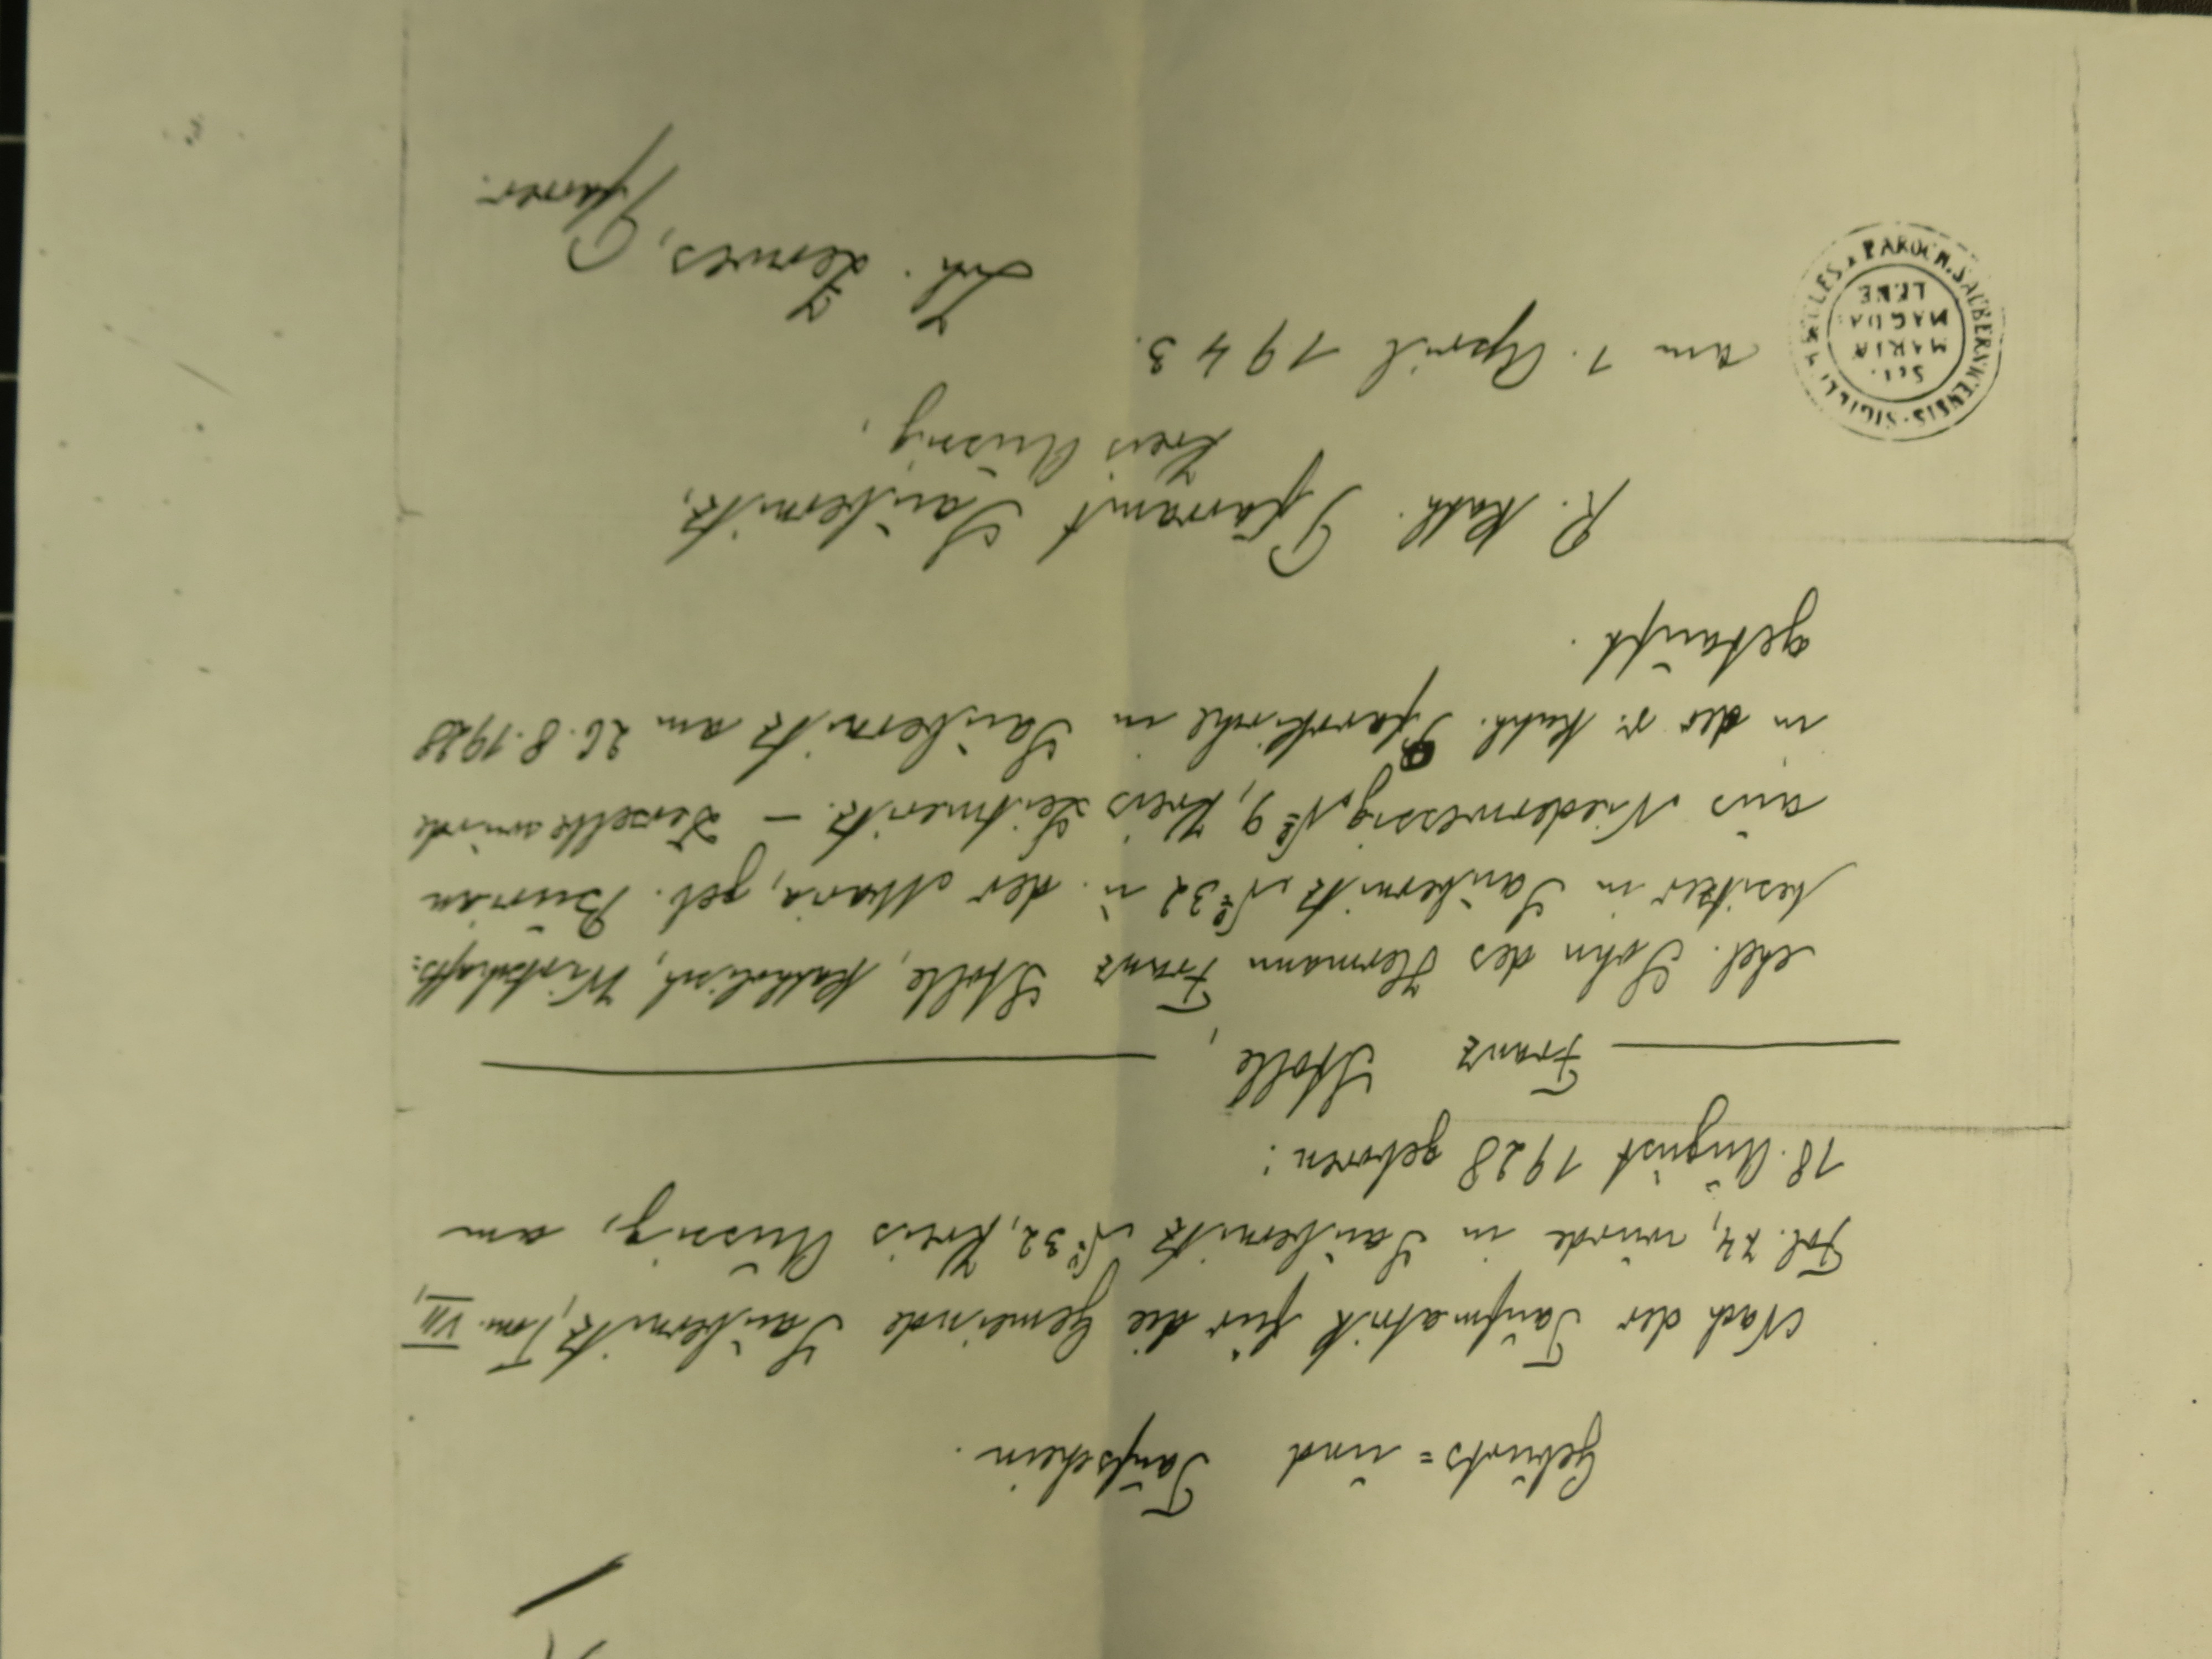 Geburts= und Taufschein.
Nach der Taufmatrik für die Gemeinde Saubernitz, Tom. VII,
Fol. 74, wurde in Saubernitz № 32, Kreis Aussig, am
18. August 1928 geboren:
Franz Stolle,
ehel. Sohn des Hermann Franz Stolle, katholisch, Wirtschafts-
besitzer in Saubernitz № 32 u. der Maria, geb. Burian
aus Niederwessig, № 9, Kreis Leitmeritz. — Derselbe wurde
in der r. kath. Pfarrkirche in Saubernitz am 26.8.1928
getauft.
R. kath. Pfarramt Saubernitz,
Kreis Aussig,
am 1. April 1943.
Pfarrer.
SAUBERNICENSIS · SIGILL.
SCT.
MARIA
MAGDA:
LENE